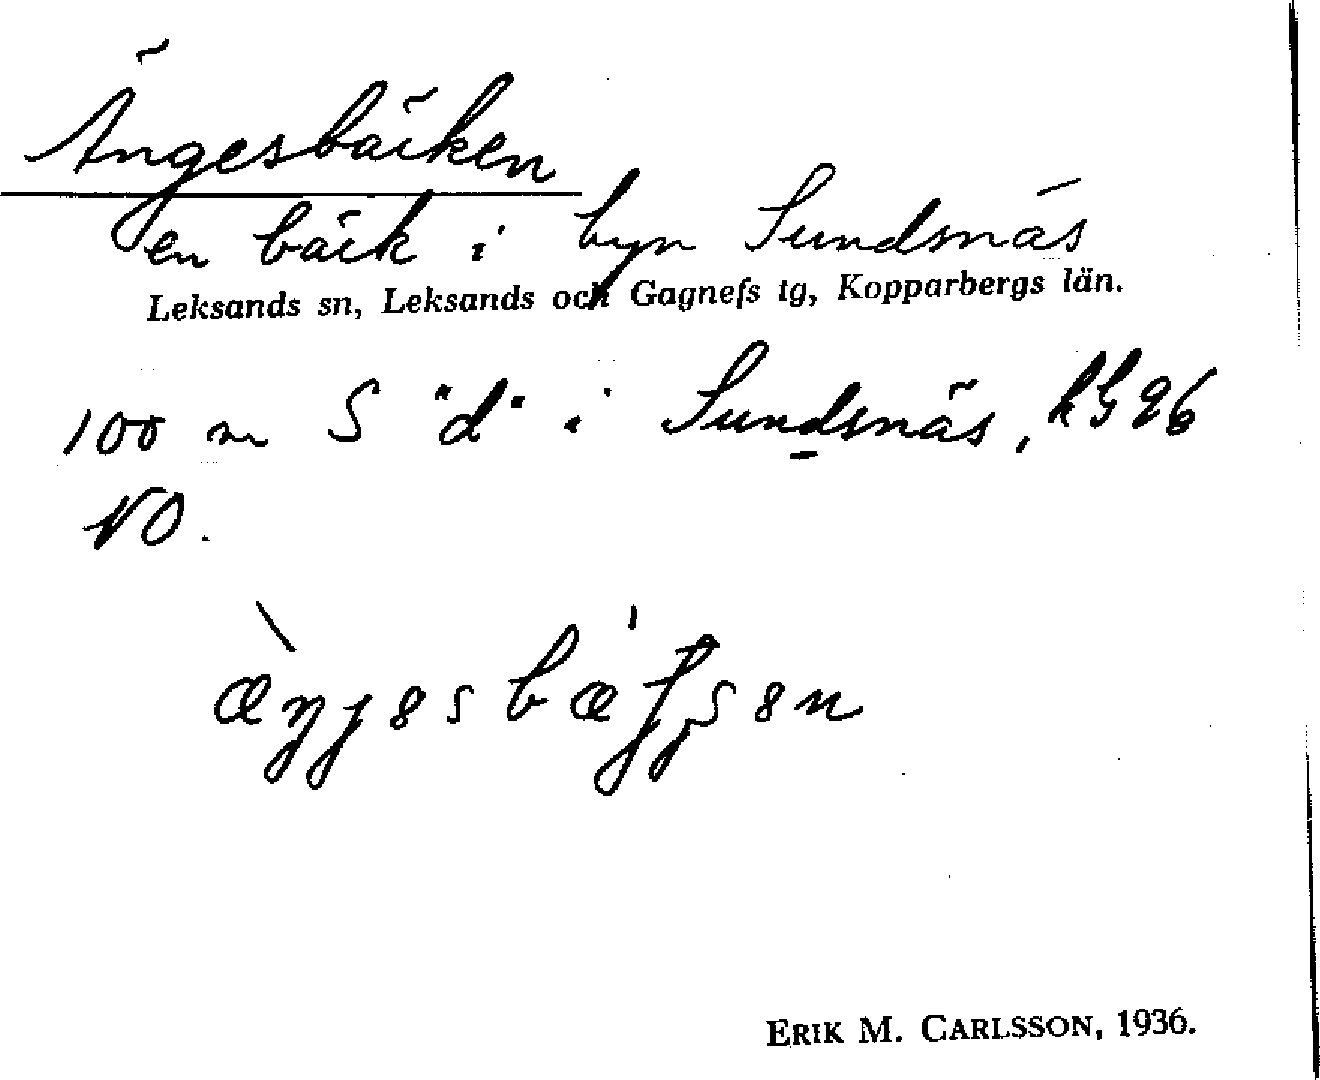 Ängesbäcken
en bäck i byn Sundsnäs
Leksands sn, Leksands och Gagnefs tg, Kopparbergs län.
100 m S "d" i Sundsnäs, kG 96
NO.
ERIK M. CARLSSON, 1936.